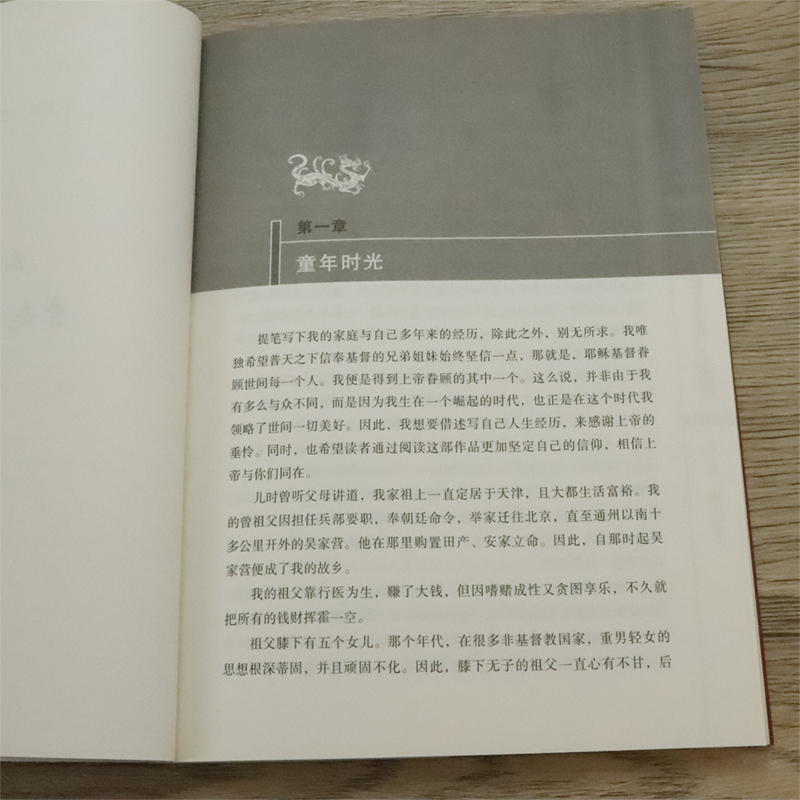 第一章
童年时光
提笔写下我的家庭与自己多年来的经历，除此之外，别无所求。我唯
独希望普天之下信奉基督的兄弟姐妹始终坚信一点，那就是，耶稣基督眷
顾世间每一个人。我便是得到上帝眷顾的其中一个。这么说，并非由于我
有多么与众不同，而是因为我生在一个崛起的时代，也正是在这个时代我
领略了世间一切美好。因此，我想要借述写自己人生经历，来感谢上帝的
垂怜。同时，也希望读者通过阅读这部作品更加坚定自己的信仰，相信上
帝与你们同在。
儿时曾听父母讲道，我家祖上一直定居于天津，且大都生活富裕。我
的曾祖父因担任兵部要职，奉朝廷命令，举家迁往北京，直至通州以南十
多公里开外的吴家营。他在那里购置田产、安家立命。因此，自那时起吴
家营便成了我的故乡。
我的祖父靠行医为生，赚了大钱，但因嗜赌成性又贪图享乐，不久就
把所有的钱财挥霍一空。
祖父膝下有五个女儿。那个年代，在很多非基督教国家，重男轻女的
思想根深蒂固，并且顽固不化。因此，膝下无子的祖父一直心有不甘，后